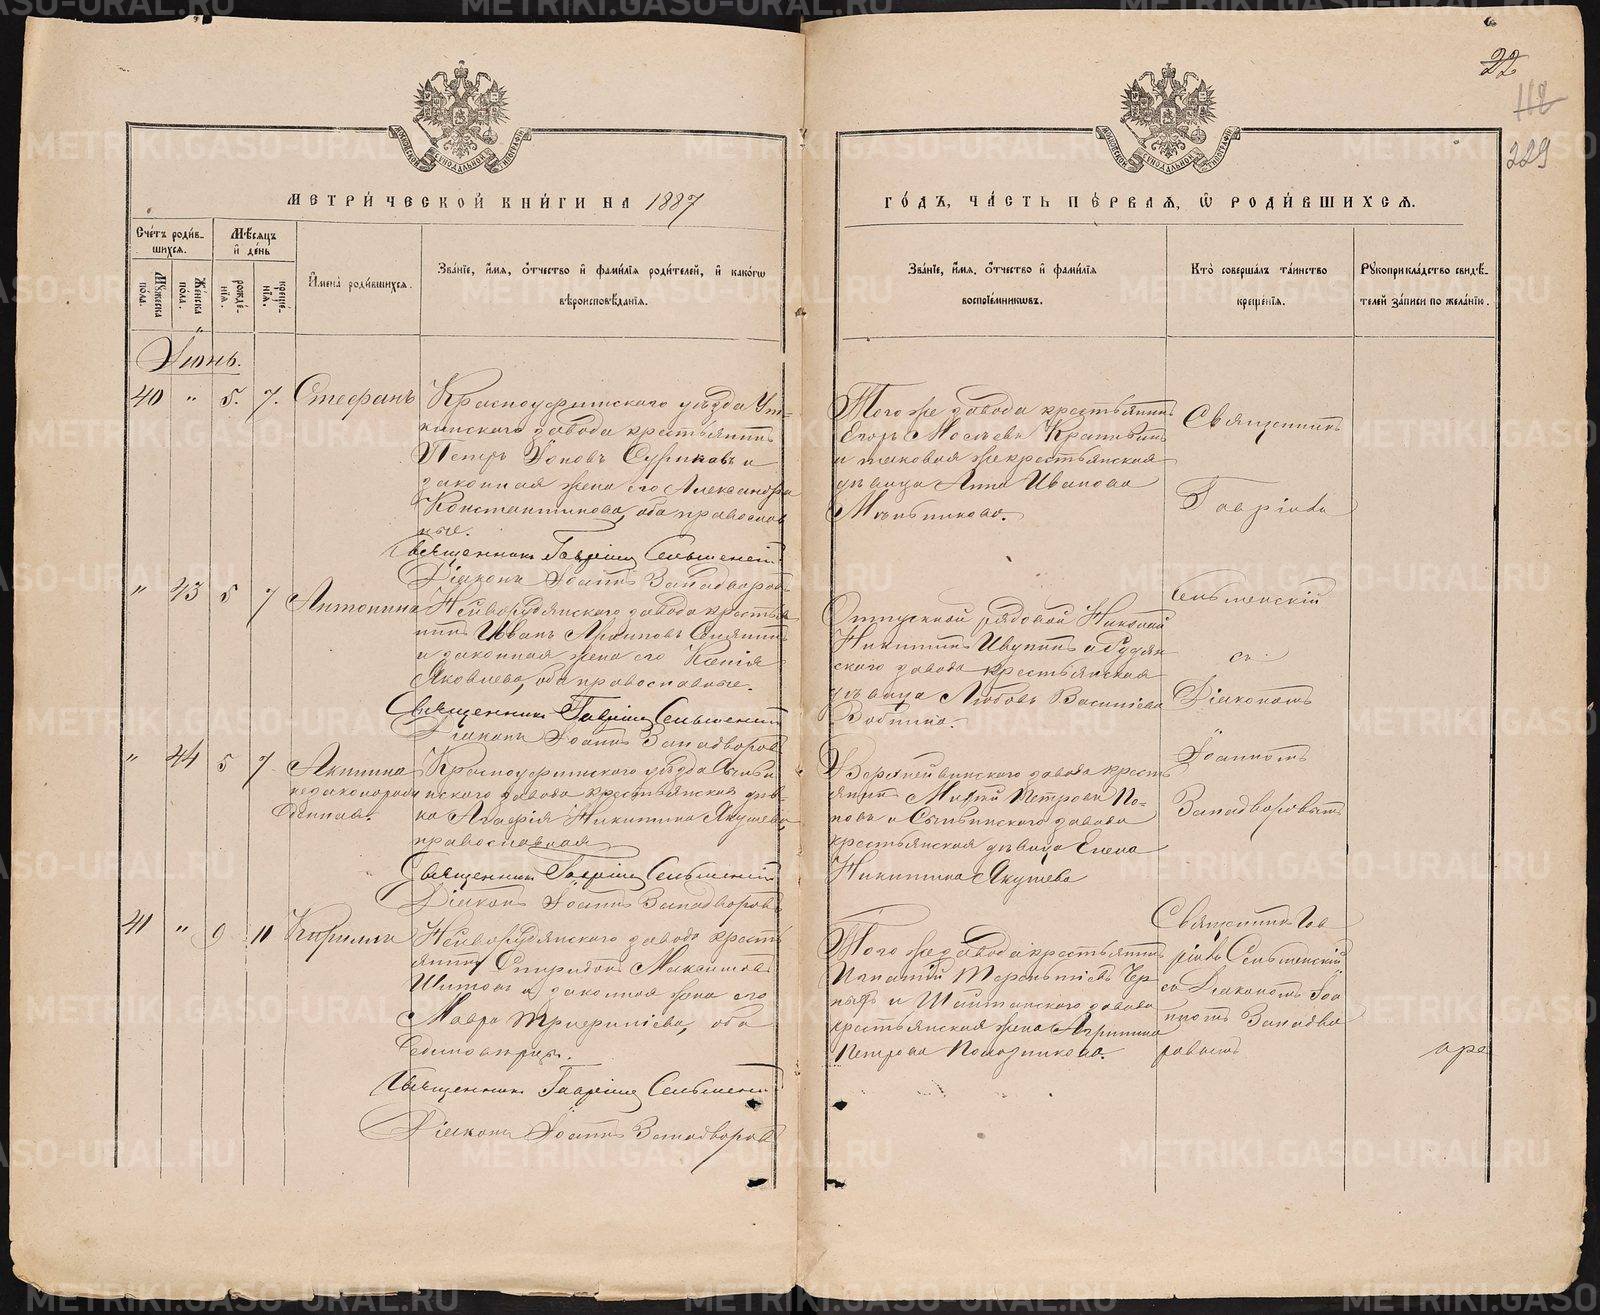 22
118
229
МЕТРИ́ЧЕСКОЙ КНИ́ГИ НА 1887
ГО́ДЪ, ЧА́СТЬ ПЕ́РВАЯ, Ѡ РОДИ́ВШИХСЯ.
Сче́тъ роди́в-
шихся.
Мѣсяцъ
и де́нь
Мꙋжеска
по́ла.
Же́нска
по́ла.
рожде́-
нїѧ.
креще́-
нїѧ.
Имена̀ роди́вшихсѧ.
Зва́нїе, и́мя, о́тчество и фами́лїя роди́телей, и како́гѡ
вѣроисповѣ́данїя.
Зва́нїе, и́мя, о́тчество и фами́лїя
воспрїе́мникѡвъ.
Кто̀ соверша́лъ та́инство
креще́нїя.
Рꙋкоприкла́дство свидѣ́-
телей за́писи по жела́нїю.
Іюнь.
40 " 5. 7. Стефанъ
Красноуфимскаго уѣзда Ут-
кинскаго завода крестьянинъ
Петръ Іоновъ Суриковъ и
законная жена его Александра
Константинова, оба православ
ные.
Священникъ Гавріилъ Сельменскій
Діаконъ Іоаннъ Западворовъ
Того же завода крестьянинъ
Егоръ Крапивинъ
и таковая же крестьянская
дѣвица Анна Иванова
Мѣльникова.
Священникъ
Гавріилъ
Сельменскій
съ
Діакономъ
Іоанномъ
Западворовымъ
" 43 5 7 Антонина
Нейворудянскаго завода крестья
нинъ Иванъ Архиповъ
и законная жена его Ксенія
Яковлева, оба православные.
Священникъ Гавріилъ Сельменскій
Діаконъ Іоаннъ Западворовъ
Отпускной рядовой Николай
Никитинъ и Рудян
скаго завода крестьянская
дѣвица Любовь Василіева
" 44 5 7. Акилина
незаконорож
денная.
Красноуфимскаго уѣзда Сылви
нскаго завода крестьянская дѣв-
ка Агафія Никитина Якушева,
православная
Священникъ Гавріилъ Сельменскій
Діаконъ Іоаннъ Западворовъ
Верхнейвинскаго завода кресть
янинъ Петровъ По-
повъ и Сылвинскаго завода
крестьянская дѣвица Елена
Никитина Якушева
41 " 9 11 Кириллъ
Нейворудянскаго завода кресть
янинъ Спиридонъ Максимовъ
Шитовъ и законная жена его
Мавра оба
единовѣрцы.
Священникъ Гавріилъ Сельменскій
Діаконъ Іоаннъ Западворовъ
Того же завода крестьянинъ
Игнатій Терентьевъ Чер
ныхъ и Шайтанскаго завода
крестьянская жена Агрипина
Петрова Полозникова.
Священникъ Гав
ріилъ Сельменскій
съ Діакономъ Іоа
нномъ Западво
ровымъ